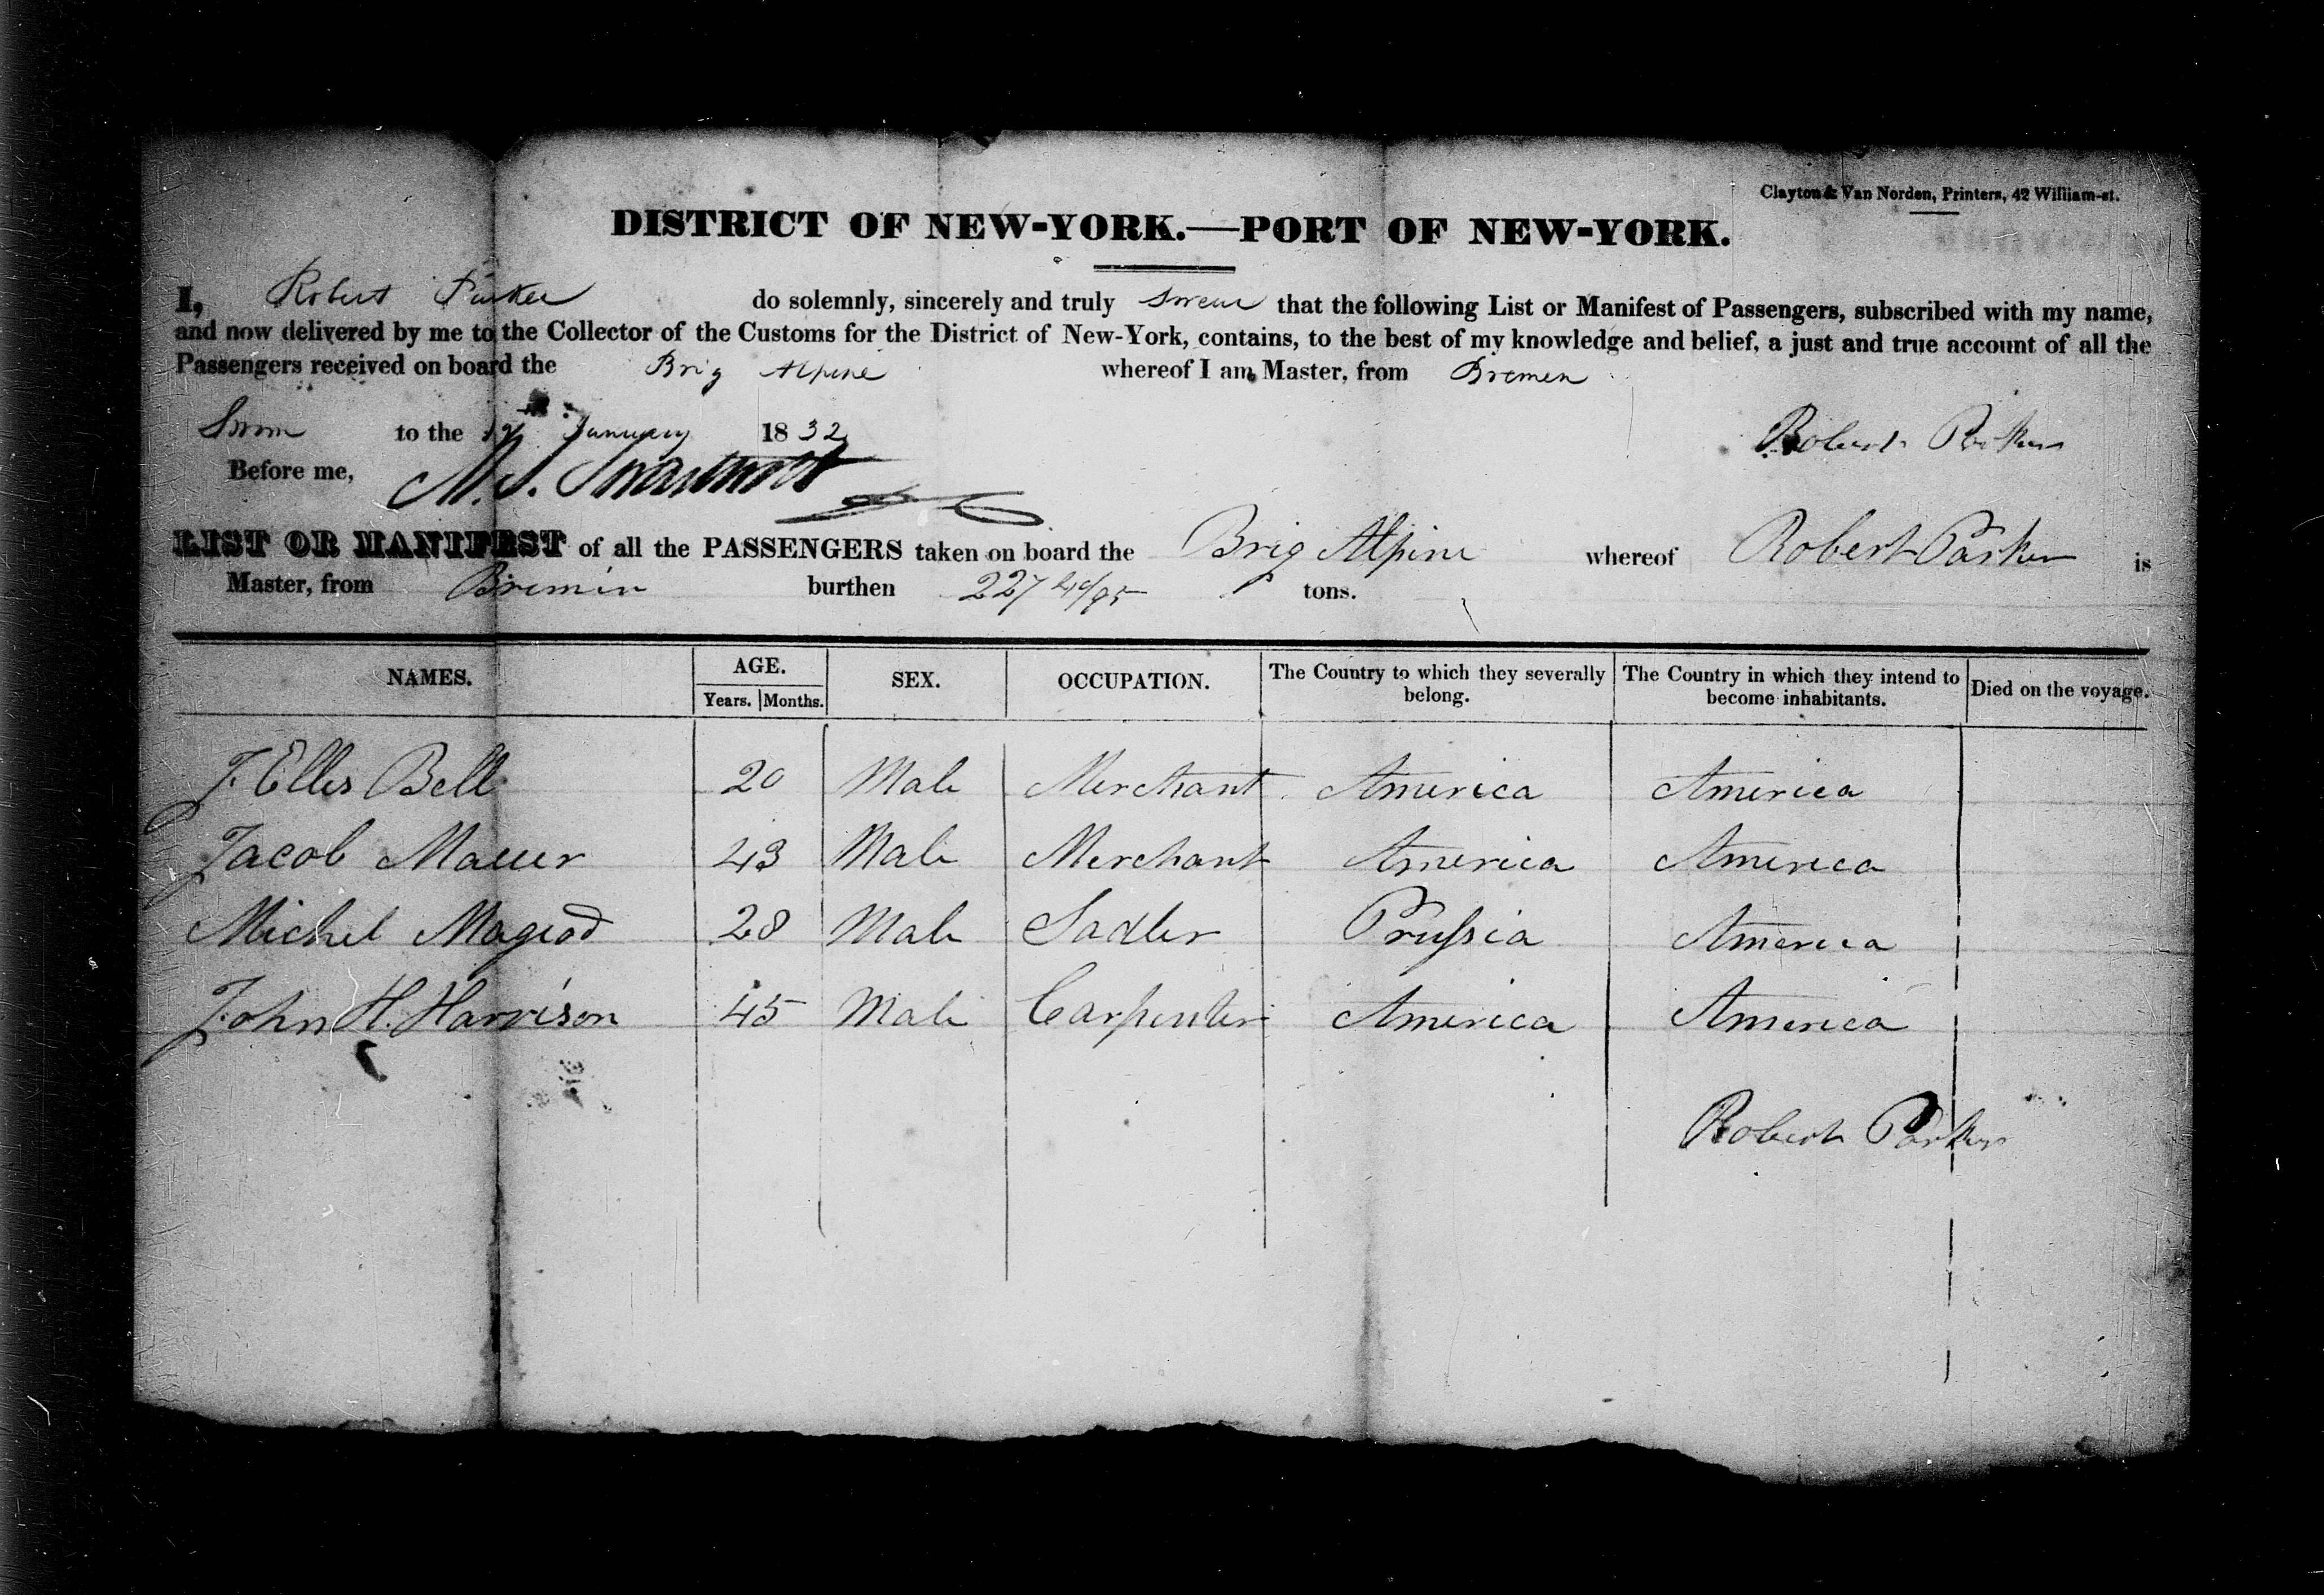 Clayton & Van Norden, Printers, 42 William-st.
DISTRICT OF NEW-YORK.—PORT OF NEW-YORK.
I, Robert Parker do solemnly, sincerely and truly swear that the following List or Manifest of Passengers, subscribed with my name,
and now delivered by me to the Collector of the Customs for the District of New-York, contains, to the best of my knowledge and belief, a just and true account of all the
Passengers received on board the Brig Alpine whereof I am Master, from Bremen
Robert Parker
Sworn to the January 1832
Before me, M. S. Swartwout
LIST OR MANIFEST of all the PASSENGERS taken on board the Brig Alpine whereof Robert Parker is
Master, from Bremin burthen 227 40/95 tons.
NAMES. AGE. Years. Months. SEX. OCCUPATION. The Country to which they severally belong. The Country in which they intend to become inhabitants. Died on the voyage.
J. Elles Bell 20 Male Merchant America America
Jacob Mauer 43 Male Merchant America America
Michel Magiod 28 Male Sadler Prussia America
John H. Harrison 45 Male Carpenter America America
Robert Parker